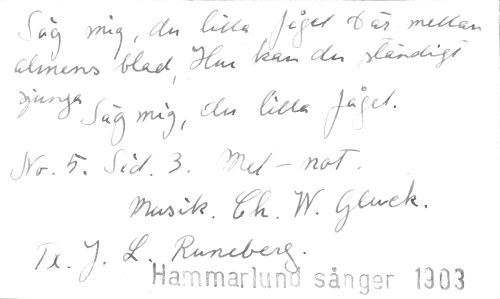 Säg mig, du lilla fågel Där mellan
almens blad, Hur kan du ständigt
sjunga
Säg mig, du lilla fågel.
No. 5. Sid. 3. Mel-not.
Musik. Ch. W. Gluck.
Tx. J. L. Runeberg.
Hammarlund sånger 1903